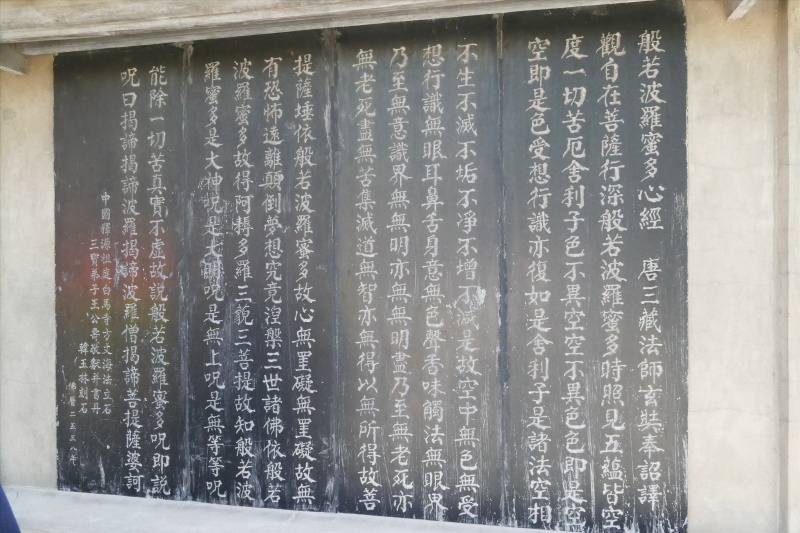 般若波羅蜜多心經 唐三藏法師玄奘奉詔譯
觀自在菩薩行深般若波羅蜜多時照見五蘊皆空
度一切苦厄舍利子色不異空空不異色色即是空
空即是色受想行識亦復如是舍利子是諸法空相
不生不滅不垢不淨不增不減是故空中無色無受
想行識無眼耳鼻舌身意無色聲香味觸法無眼界
乃至無意識界無無明亦無無明盡乃至無老死亦
無老死盡無苦集滅道無智亦無得以無所得故菩
提薩埵依般若波羅蜜多故心無罣礙無罣礙故無
有恐怖遠離顛倒夢想究竟涅槃三世諸佛依般若
波羅蜜多故得阿耨多羅三藐三菩提故知般若波
羅蜜多是大神呪是大明呪是無上呪是無等等呪
能除一切苦真實不虛故說般若波羅蜜多呪即說
呪曰揭諦揭諦波羅揭諦波羅僧揭諦菩提薩婆訶
中國釋源祖庭白馬寺方丈海法立石
三寶弟子王公壽敬書并書丹
韓玉林刻石
佛曆二五三八年